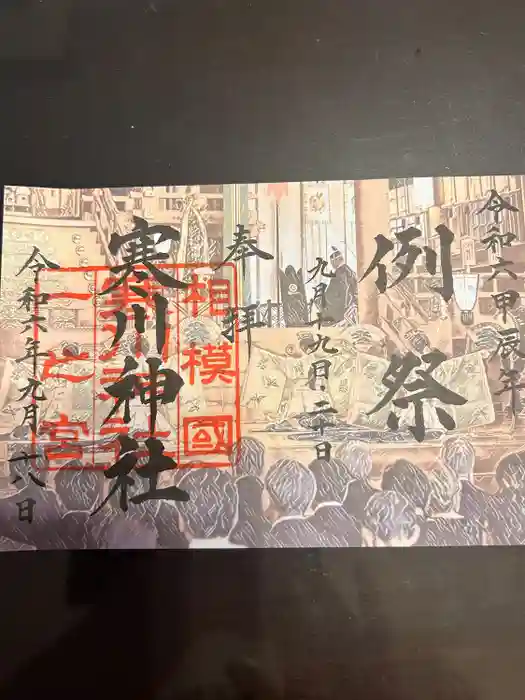 令和六甲辰年
例祭
九月十九月二十日
奉拝
寒川神社
相模國
一之宮
令和六年九月二十八日